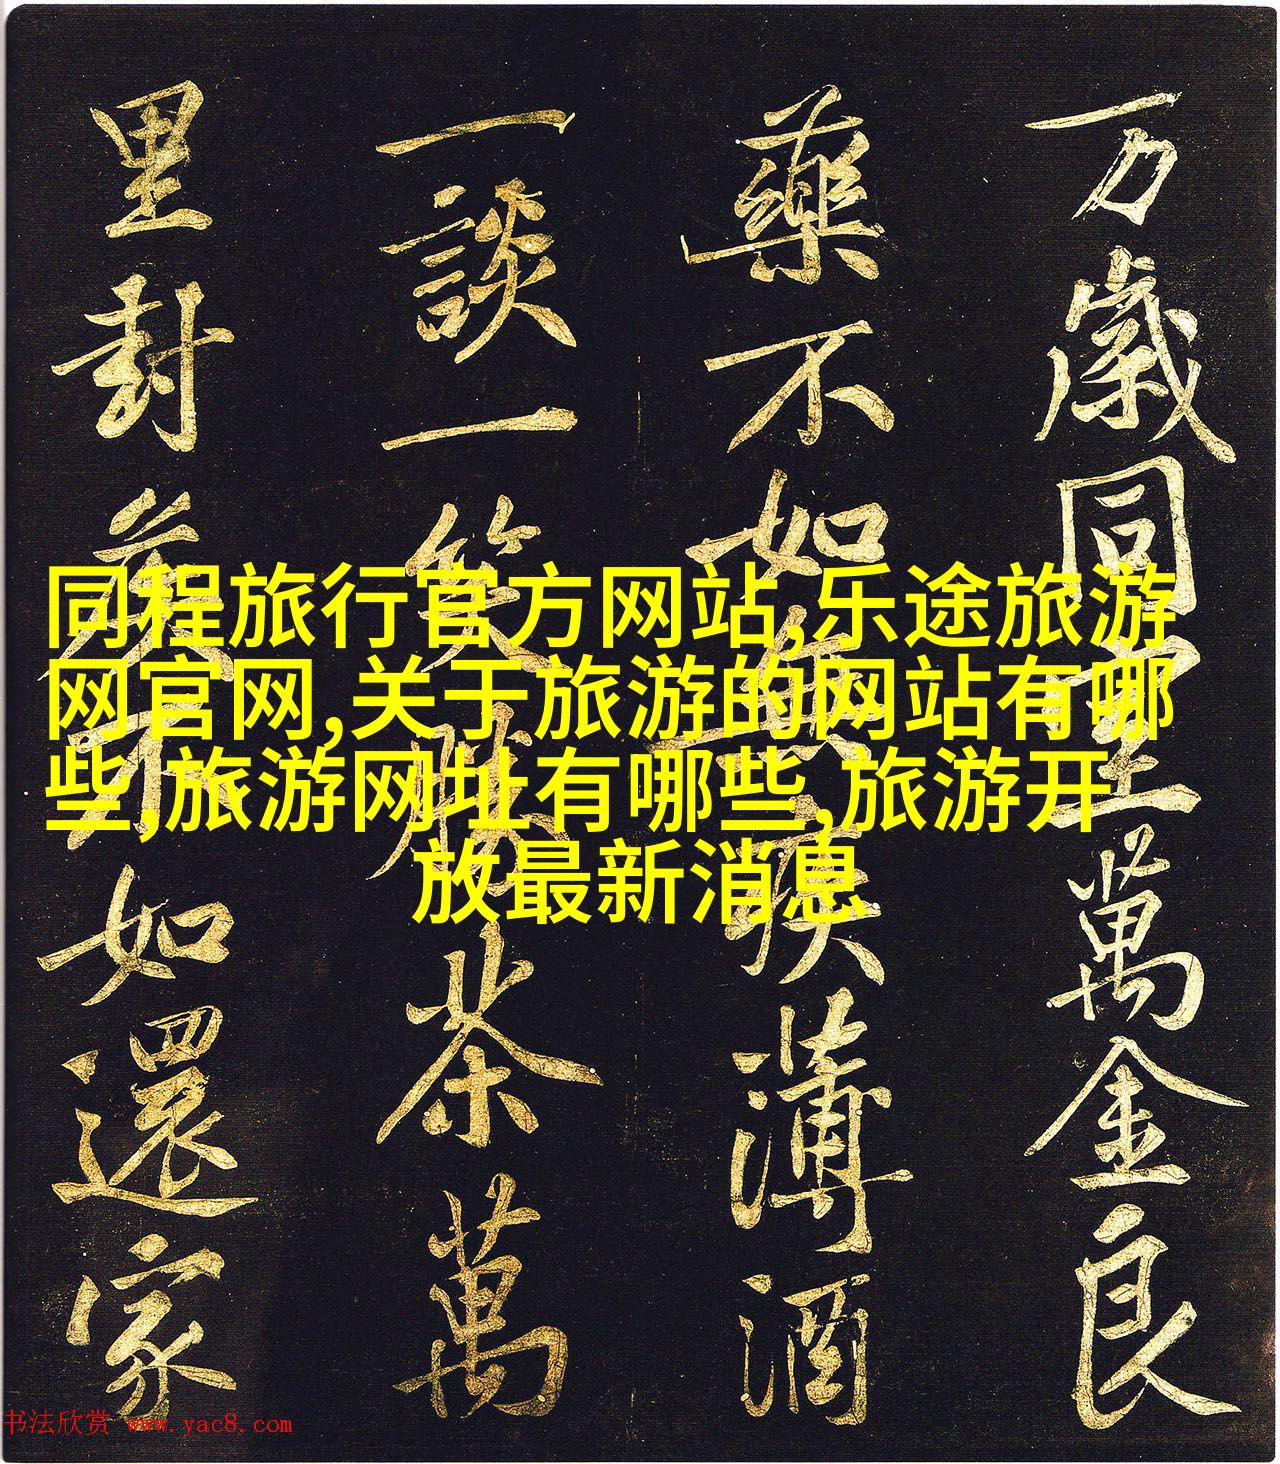 万歲同堂萬金良
藥不如無疾薄酒
一談一笑勝茶萬
里封矦不如還家
同程旅行官方网站,乐途旅游
网官网,关于旅游的网站有哪
些,旅游网址有哪些,旅游开
放最新消息
书法欣赏 www.yac8.com